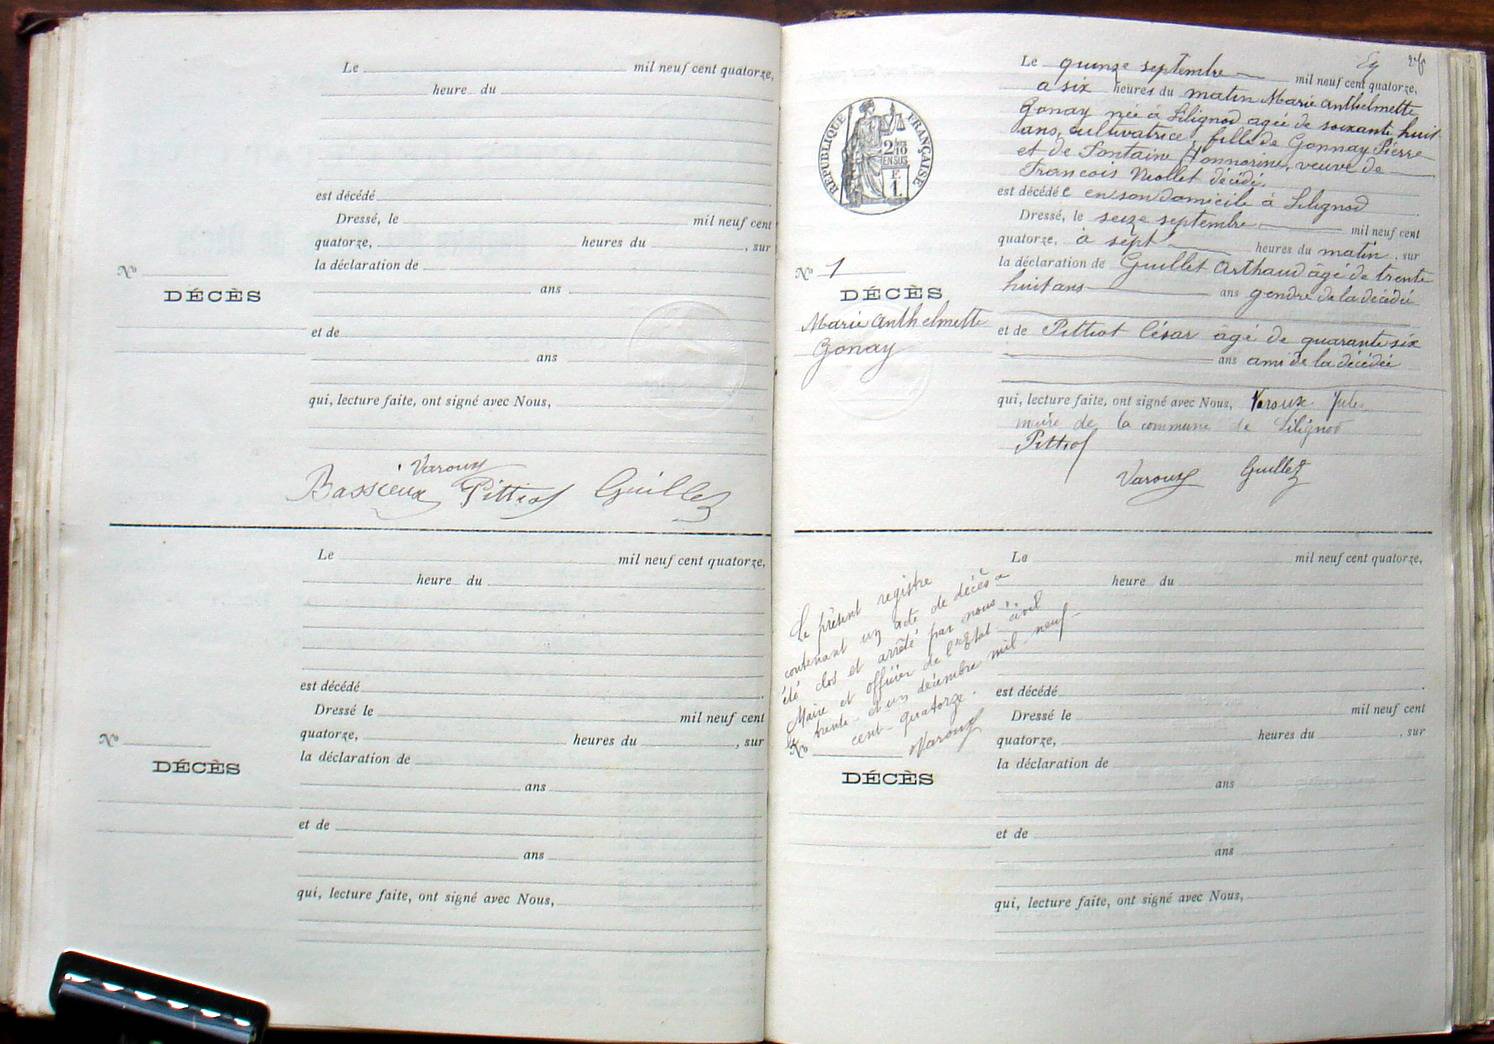 Le mil neuf cent quatorze,
heure du
est décédé
Dressé, le mil neuf cent
quatorze, heures du , sur
No la déclaration de
DÉCÈS
ans
et de
ans
qui, lecture faite, ont signé avec Nous,
Varoux
Bassieux Pittiot Guillet
Le mil neuf cent quatorze,
heure du
est décédé
Dressé le mil neuf cent
No quatorze, heures du , sur
DÉCÈS la déclaration de
ans
et de
ans
qui, lecture faite, ont signé avec Nous,
Le quinze septembre mil neuf cent quatorze,
à six heures du matin Marie Anthelmette
Gonay née à Lilignod agée de soixante huit
ans, cultivatrice, fille de Gonnay Pierre
et de Fontaine Honnorine, veuve de
Francois décédé.
RÉPUBLIQUE FRANÇAISE
2/10
EN SUS
F.
1.
est décédée en son domicile à Lilignod
Dressé, le seize septembre mil neuf cent
quatorze, à sept heures du matin, sur
No 1 la déclaration de Guillet Arthaud âgé de trente
DÉCÈS huit ans ans gendre de la décédée
Marie Anthelmette
Gonay
et de Pittiot César âgé de quarante six
ans ami de la décédée
qui, lecture faite, ont signé avec Nous, Varoux Jules
maire de la commune de Lilignod
Pittiot
Varoux Guillet
Le présent registre
contenant un acte de décès a
été clos et arrêté par nous
Maire et officier de l'Etat civil
le trente et un décembre mil neuf
cent quatorze.
Varoux
Le mil neuf cent quatorze,
heure du
est décédé
Dressé le mil neuf cent
No quatorze, heures du , sur
DÉCÈS la déclaration de
ans
et de
ans
qui, lecture faite, ont signé avec Nous,